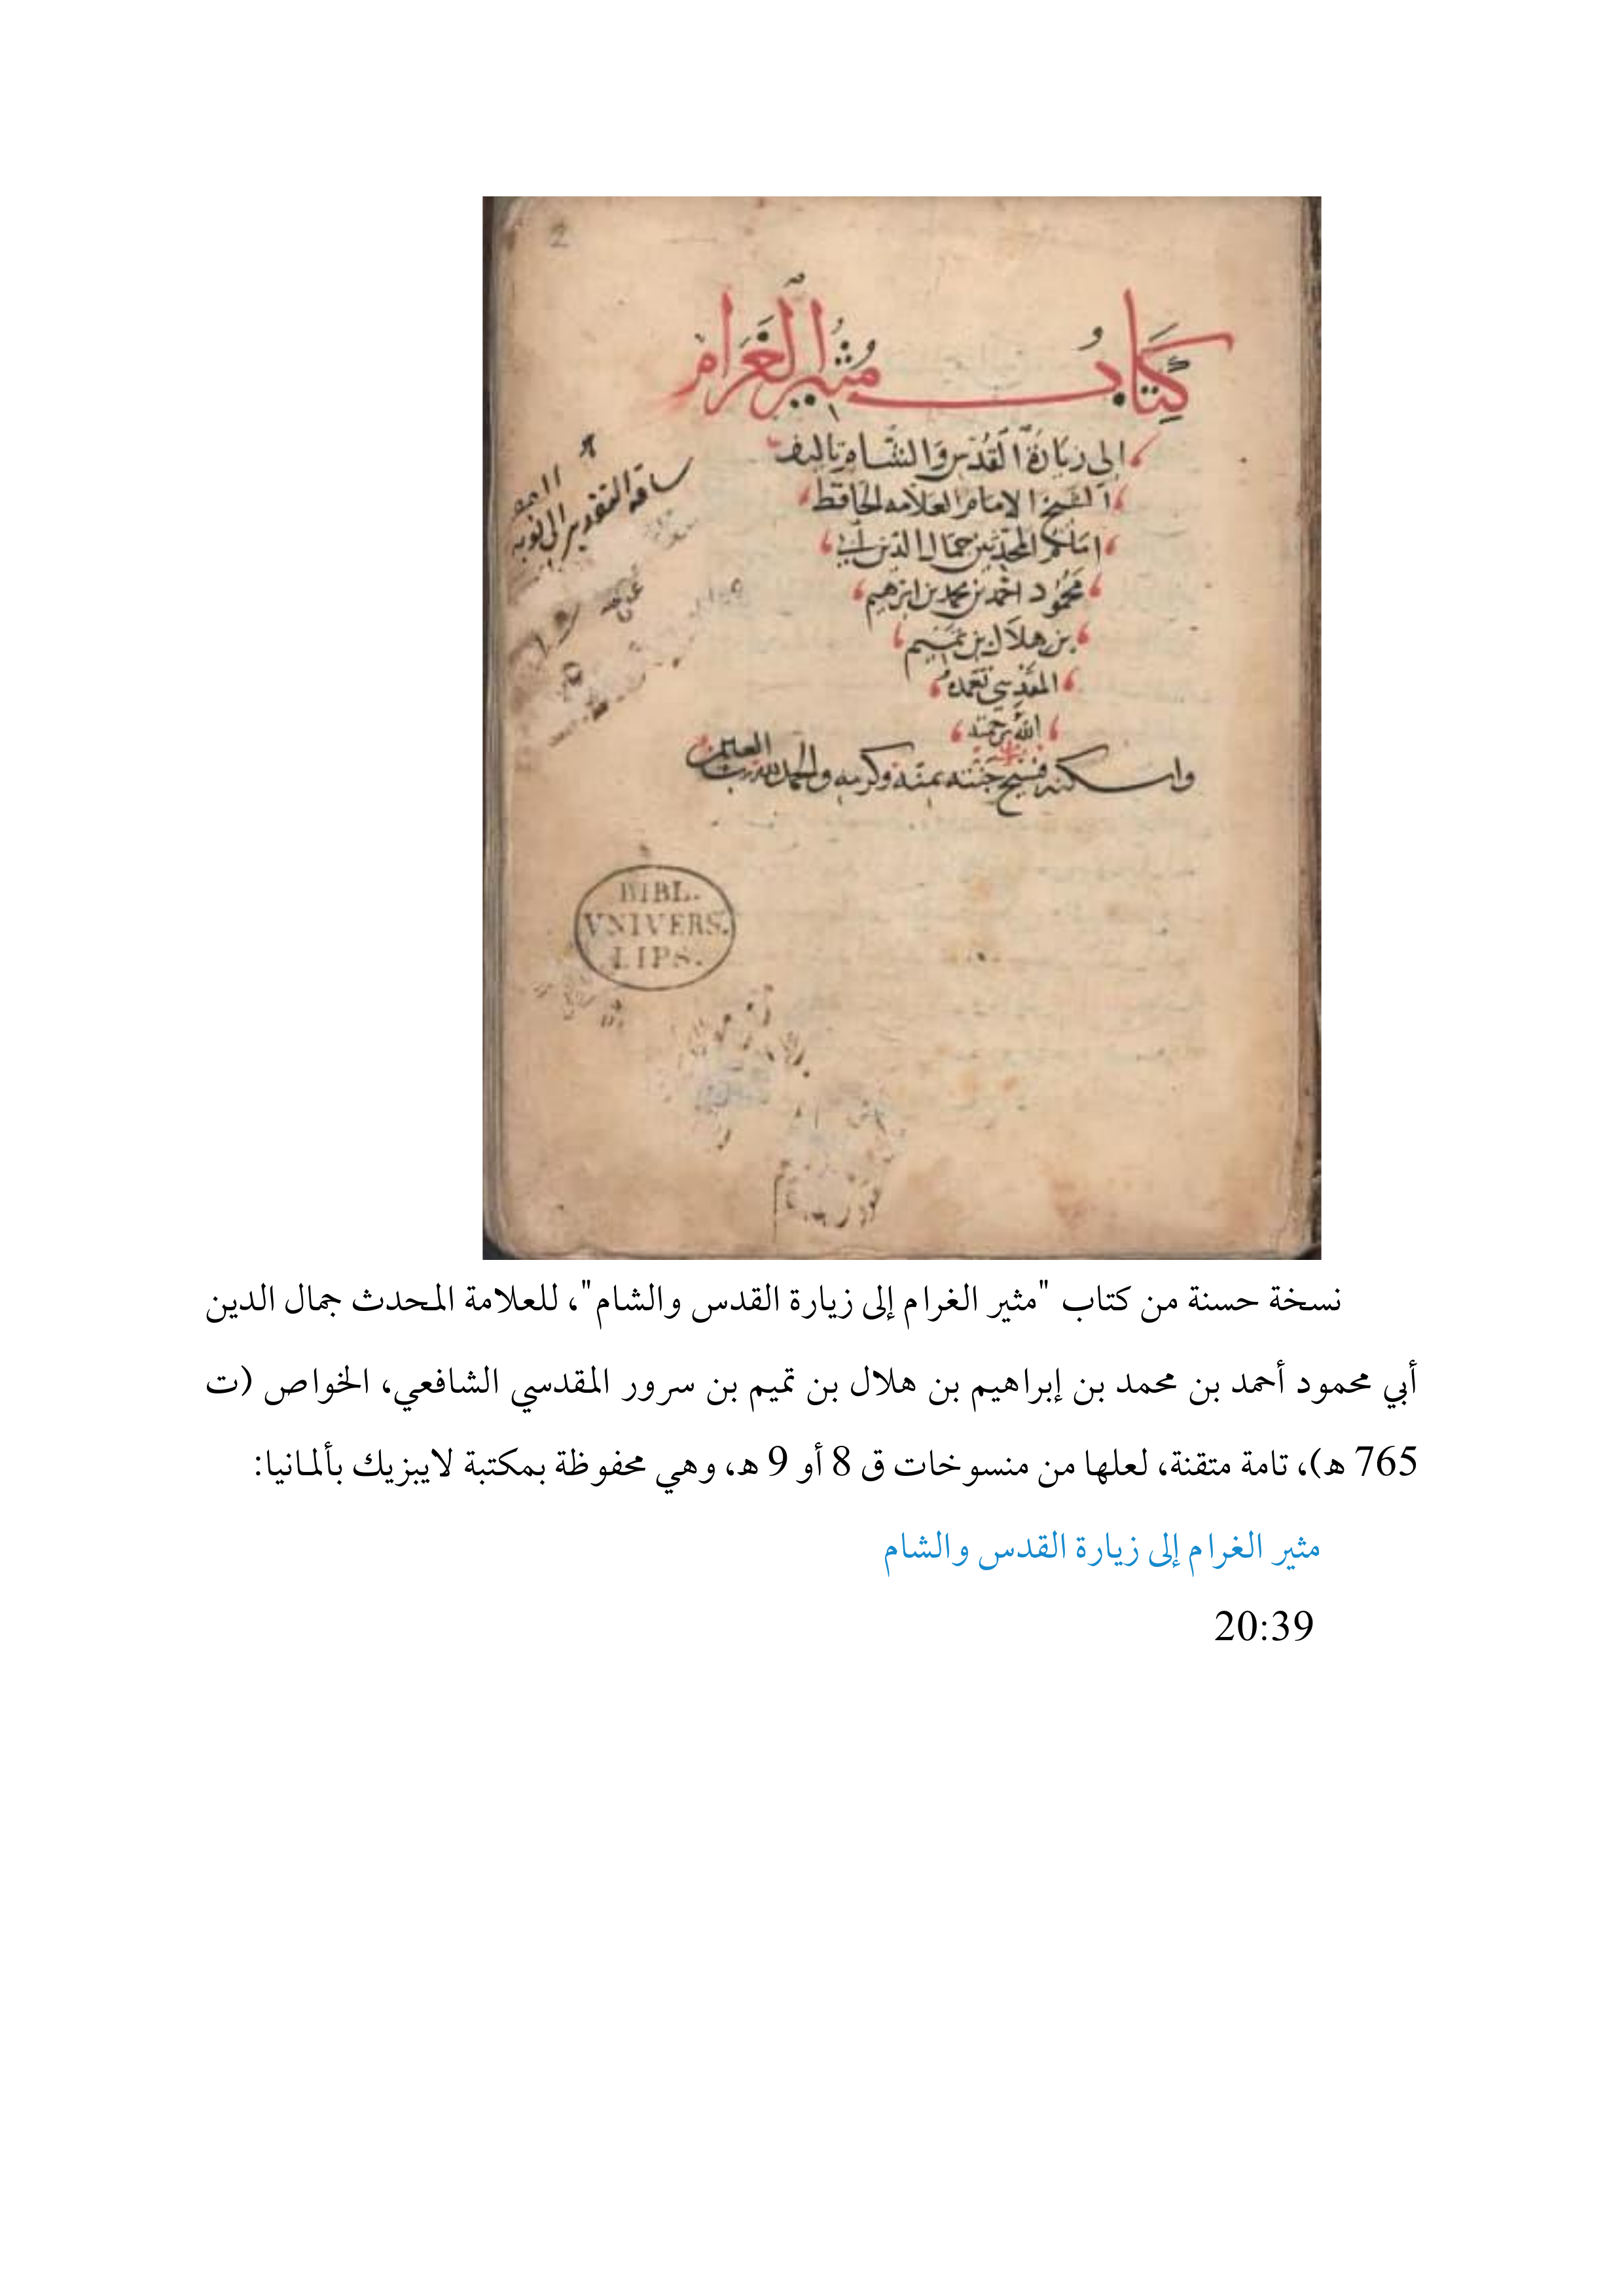 2
كِتَابُ مُثيرُ الغَرَام
الى زيَارَة القُدْس وَالشَّام تاليف
الشيخ الامام العلامه الحافظ
امام المحدثين جمال الدين أبي
محمُود احمد بن محمد بن ابرهيم
بن هلال بن تميم
المقدسي تغمده
الله برحمته
واسكنه فسيح جنته بمنه وكرمه والحمد لله رب العلمين
ساقه التقدير الى نوبة
BIBL.
VNIVERS.
LIPS.
نسخة حسنة من كتاب "مثير الغرام إلى زيارة القدس والشام"، للعلامة المحدث جمال الدين
أبي محمود أحمد بن محمد بن إبراهيم بن هلال بن تميم بن سرور المقدسي الشافعي، الخواص (ت
765 هـ)، تامة متقنة، لعلها من منسوخات ق 8 أو 9 هـ، وهي محفوظة بمكتبة لايبزيك بألمانيا:
مثير الغرام إلى زيارة القدس والشام
20:39